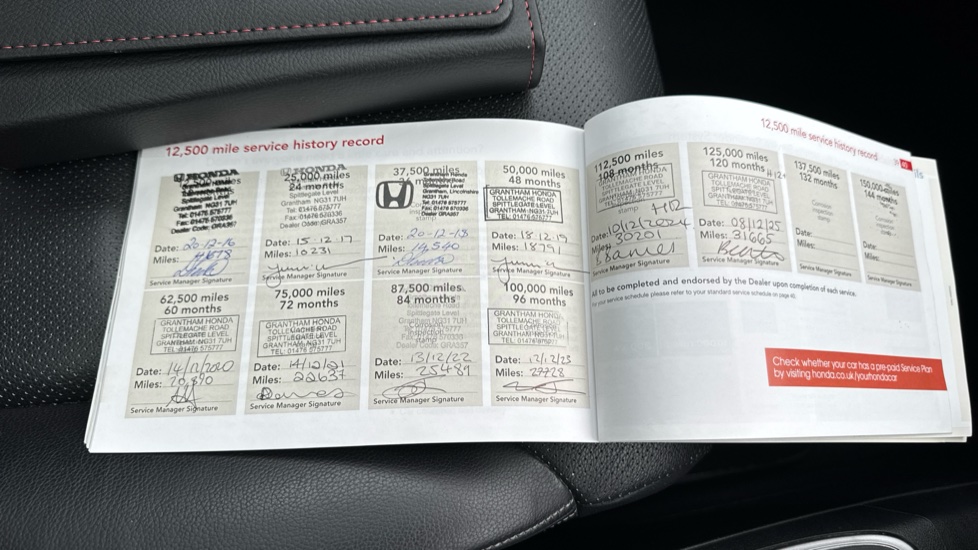 12,500 mile service history record
HONDA
Spittlegate Level
Grantham NG31 7UH
Tel: 01476 575777
Fax: 01476 570336
Dealer Code: GRA357
Date: 20-12-16
Miles:
Service Manager Signature
HONDA
25,000 miles
24 months
Spittlegate Level
Grantham NG31 7UH
Tel: 01476 575777
Fax: 01476 570336
Dealer Code: GRA357
Date: 15.12.17
Miles: 10231
Service Manager Signature
37,500 miles
Grantham Honda
Spittlegate Level
Grantham, Lincolnshire
NG31 7UH
Tel: 01476 575777
Fax: 01476 570336
Dealer GRA357
stamp
Date: 20-12-18
Miles: 14,540
Service Manager Signature
50,000 miles
48 months
GRANTHAM HONDA
TOLLEMACHE ROAD
SPITTLEGATE LEVEL
GRANTHAM NG31 7UH
TEL: 01476 575777
Date: 18.12.19
Miles: 1879
Service Manager Signature
62,500 miles
60 months
GRANTHAM HONDA
TOLLEMACHE ROAD
SPITTLEGATE LEVEL
GRANTHAM NG31 7UH
TEL: 01476 575777
Date: 14/12/2020
Miles: 20,890
Service Manager Signature
75,000 miles
72 months
GRANTHAM HONDA
TOLLEMACHE ROAD
SPITTLEGATE LEVEL
GRANTHAM NG31 7UH
TEL: 01476 575777
Date: 14/12/21
Miles: 22637
Service Manager Signature
87,500 miles
84 months
Grantham Honda
Spittlegate Level
Grantham NG31 7UH
stamp
Dealer Code: GRA357
Date: 13/12/22
Miles: 25489
Service Manager Signature
100,000 miles
96 months
GRANTHAM HONDA
TOLLEMACHE ROAD
SPITTLEGATE LEVEL
GRANTHAM NG31 7UH
TEL: 01476 575777
Date: 12/12/23
Miles: 27728
Service Manager Signature
12,500 mile service history record
112,500 miles
108 months
GRANTHAM HONDA
TOLLEMACHE ROAD
SPITTLEGATE LEVEL
GRANTHAM NG31 7UH
stamp
Date: 10/12/2024
Miles: 30201
Service Manager Signature
125,000 miles
120 months
GRANTHAM HONDA
TOLLEMACHE ROAD
SPITTLEGATE LEVEL
GRANTHAM NG31 7UH
Date: 08/12/25
Miles: 31665
Service Manager Signature
137,500 miles
132 months
Corrosion
inspection
stamp
Date:
Miles:
Service Manager Signature
150,000 miles
144 months
Date:
Miles:
Service Manager Signature
to be completed and endorsed by the Dealer upon completion of each service.
your service schedule (please refer to your standard service schedule on page
Check whether your car has a pre-paid Service Plan
by visiting honda.co.uk/yourhondacar